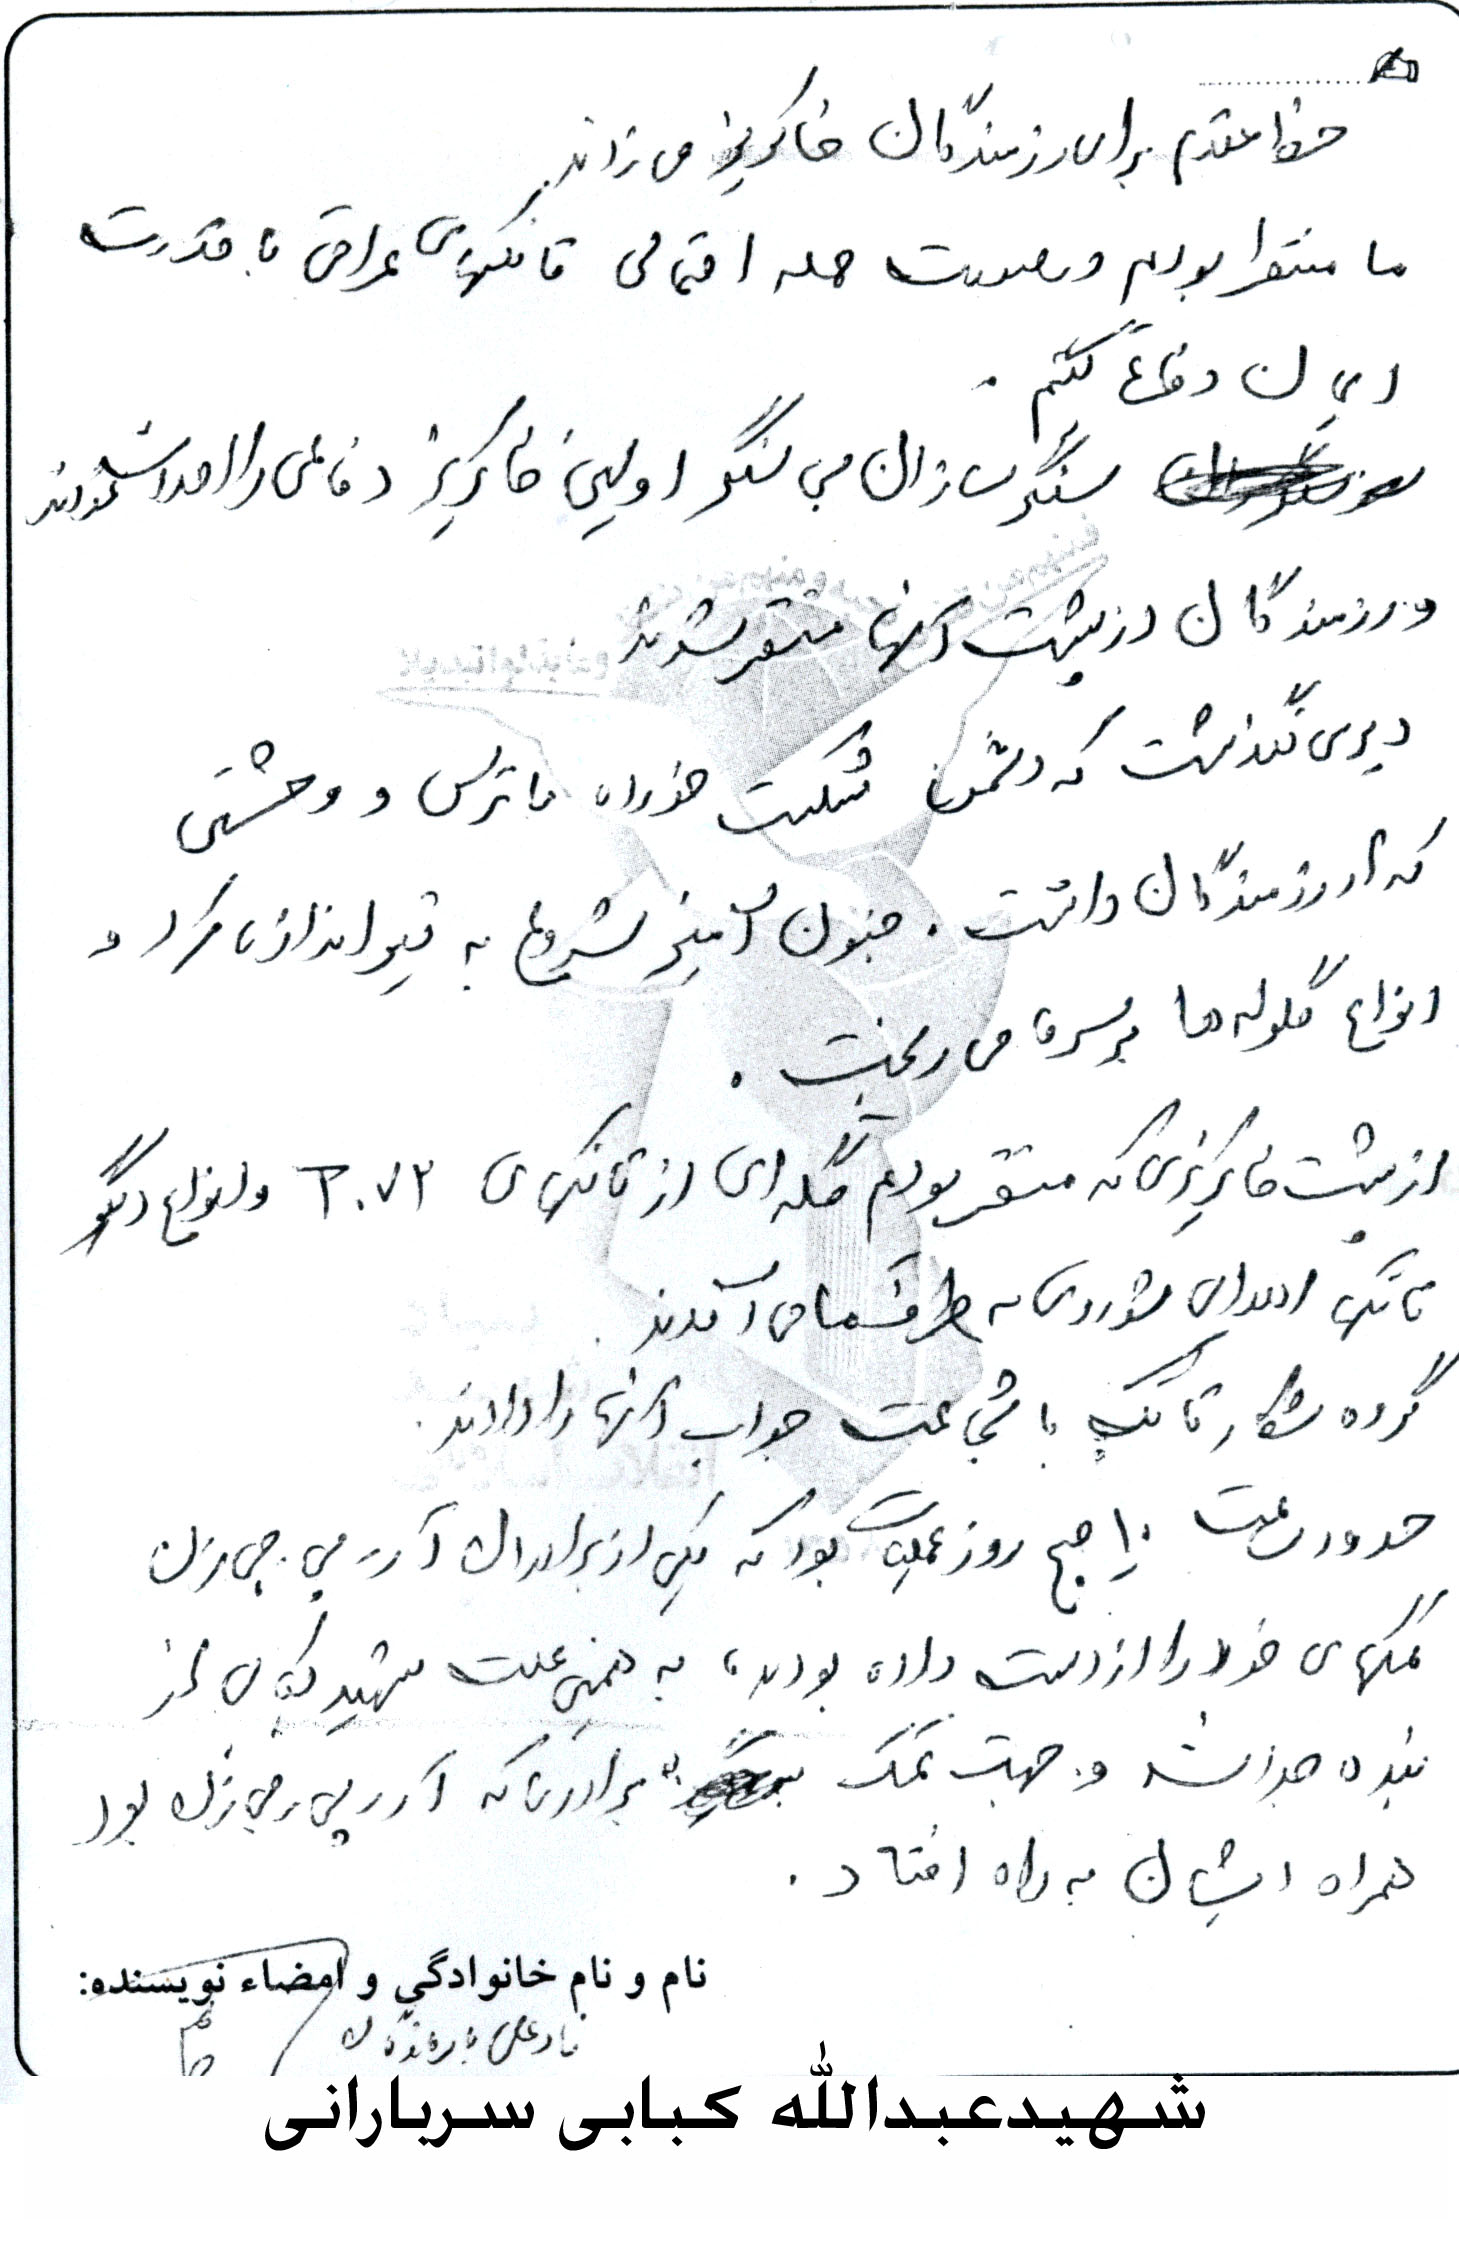 خط مقدم برای رزمندگان خاکریز می زدند.
ما منتظر بودیم در صورت حمله احتمالی تانکهای عراقی با قدرت
از آن دفاع کنیم.
سنگرسازان بی سنگر اولین خاکریز دفاعی را احداث نمودند
و رزمندگان در پشت آنها مستقر شدند
دیری نگذشت که دشمن شکست خورده با ترس و وحشتی
که از رزمندگان داشت. جنون آمیز شروع به تیراندازی کرد و
انواع گلوله ها بر سر ما می ریخت.
از پشت خاکریزی که مستقر بودیم گله ای از تانکهای T.72 و انواع دیگر
تانک اهدایی شوروی به طرف ما می آمدند.
گروه شکار تانک با شجاعت جواب آنها را دادند.
حدود ساعت 10 صبح روز عملیات بود که یکی از برادران آر پی جی زن
کمکهای خود را از دست داده بودند، به همین علت شهید کبابی از
بنده جدا شد و جهت کمک به برادری که آر پی جی زن بود
همراه ایشان به راه افتاد.
نام و نام خانوادگی و امضاء نویسنده:
شهیدعبدالله کبابی سریارانی